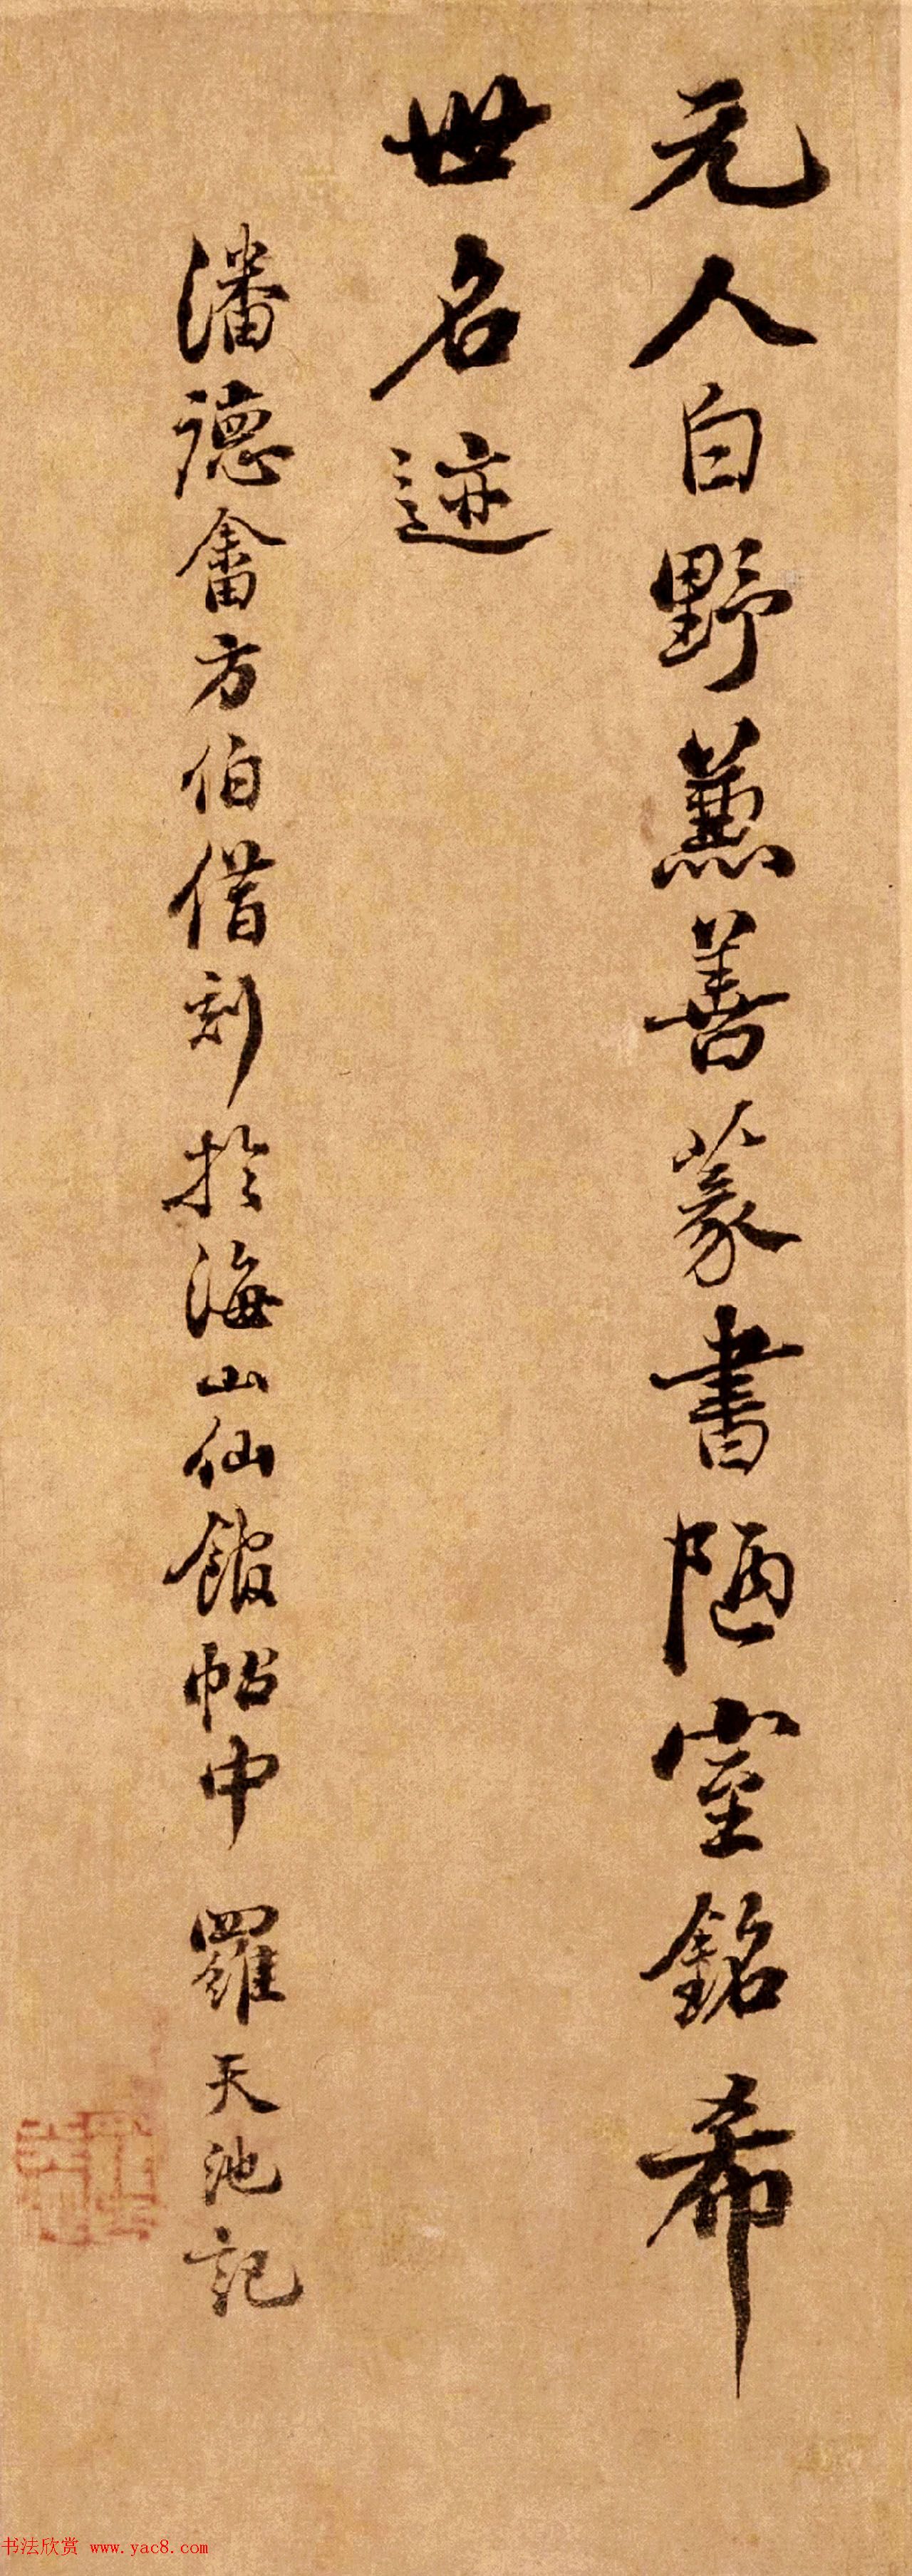 元人白野兼善篆書陋室銘希
世名迹
潘德畬方伯借刻於海山仙館帖中 羅天池記
书法欣赏 www.yac8.com